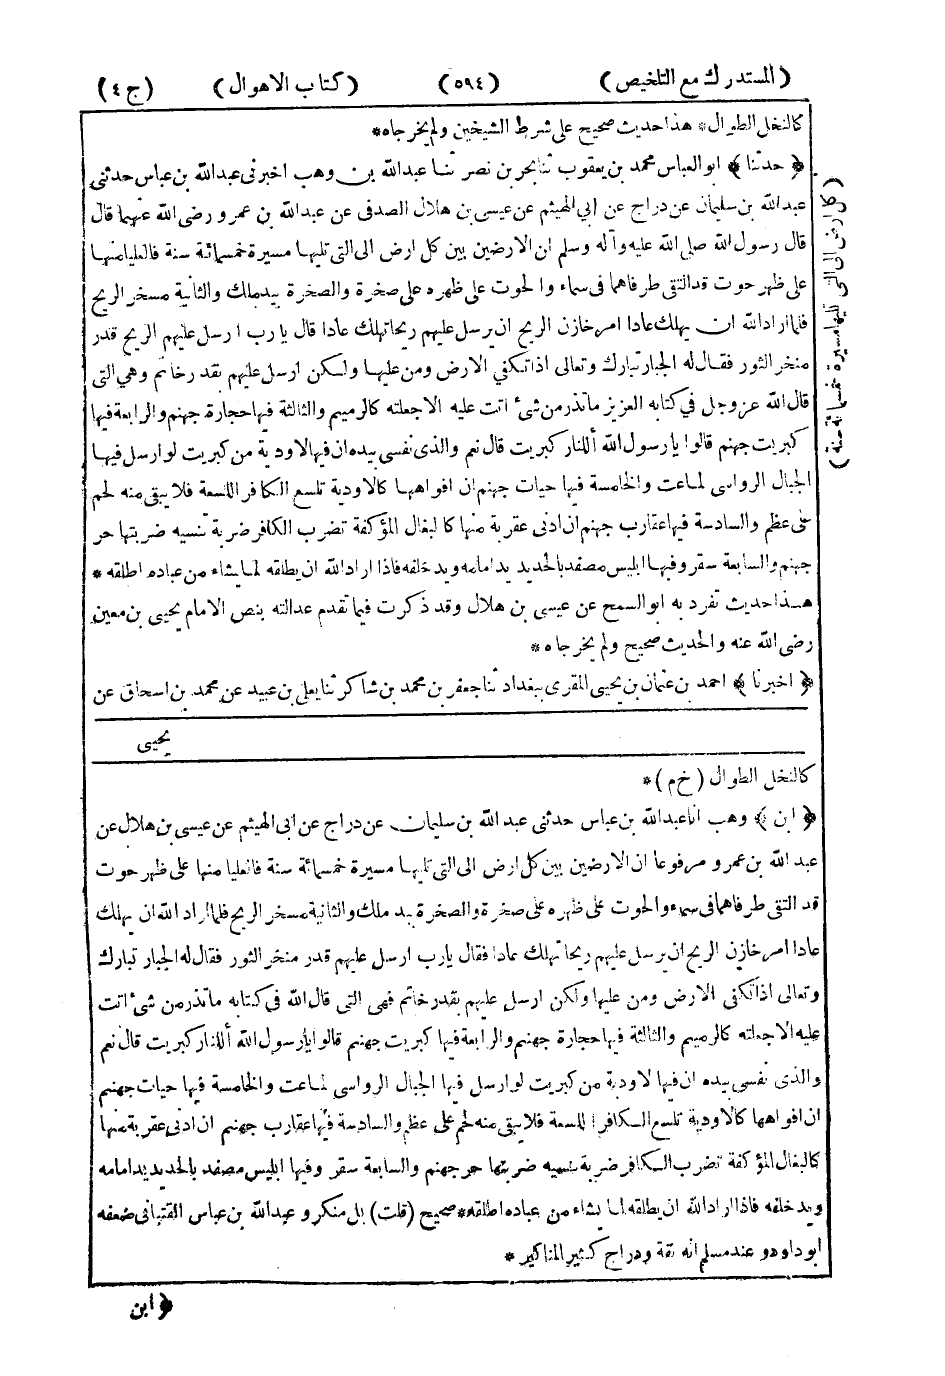 (المستدرك مع التلخيص) (٥٩٤) (كتاب الاهوال) (ج ٤)
كالنخل الطوال * هذا حديث صحيح على شرط الشيخين ولم يخرجاه *
﴿ حدثنا ﴾ ابو العباس محمد بن يعقوب ثنا بحر بن نصر ثنا عبدالله بن وهب اخبرني عبدالله بن عباس حدثني
عبدالله بن سليمان عن دراج عن ابي الهيثم عن عيسى بن هلال الصدفى عن عبدالله بن عمرو رضى الله عنهما قال
قال رسول الله صلى الله عليه وآله وسلم ان الارضين بين كل ارض الى التى تليها مسيرة خمسمائة سنة فالعليا منها
على ظهر حوت قد التقى طرفاهما فى سماء والحوت على ظهره على صخرة والصخرة بيد ملك والثانية مسخر الريح
فلما اراد الله ان يهلك عادا امر خازن الريح ان يرسل عليهم ريحا تهلك عادا قال يا رب ارسل عليهم الريح قدر
منخر الثور فقال له الجبار تبارك وتعالى اذا تكفي الارض ومن عليها ولكن ارسل عليهم بقدر خاتم وهي التى
قال الله عز وجل في كتابه العزيز ما تذر من شئ اتت عليه الا جعلته كالرميم والثالثة فيها حجارة جهنم والرابعة فيها
كبريت جهنم قالوا يا رسول الله أللنار كبريت قال نعم والذى نفسى بيده ان فيها لاودية من كبريت لو ارسل فيها
الجبال الرواسى لماعت والخامسة فيها حيات جهنم ان افواهها كالاودية تلسع الكافر اللسعة فلا يبقى منه لحم
على عظم والسادسة فيها عقارب جهنم ان ادنى عقربة منها كالبغال المؤكفة تضرب الكافر ضربة تنسيه ضربتها حر
جهنم والسابعة سقر وفيها ابليس مصفد بالحديد يد امامه ويد خلفه فاذا اراد الله ان يطلقه لما يشاء من عباده اطلقه *
هذا حديث تفرد به ابو السمح عن عيسى بن هلال وقد ذكرت فيما تقدم عدالته بنص الامام يحيى بن معين
رضى الله عنه والحديث صحيح ولم يخرجاه *
﴿ اخبرنا ﴾ احمد بن عثمان بن يحيى المقرى ببغداد ثنا جعفر بن محمد بن شاكر ثنا يعلى بن عبيد عن محمد بن اسحاق عن
يحيى
كالنخل الطوال (خ م) *
﴿ ابن ﴾ وهب انا عبدالله بن عباس حدثنى عبد الله بن سليمان عن دراج عن ابى الهيثم عن عيسى بن هلال عن
عبد الله بن عمرو مرفوعا ان الارضين بين كل ارض الى التى تليها مسيرة خمسمائة سنة فالعليا منها على ظهر حوت
قد التقى طرفاهما فى سماء والحوت على ظهره على صخرة والصخرة بيد ملك والثانية مسخر الريح فلما اراد الله ان يهلك
عادا امر خازن الريح ان يرسل عليهم ريحا تهلك عادا فقال يا رب ارسل عليهم قدر منخر الثور فقال له الجبار تبارك
وتعالى اذا تكفي الارض ومن عليها ولكن ارسل عليهم بقدر خاتم فهى التى قال الله فى كتابه ما تذر من شئ اتت
عليه الا جعلته كالرميم والثالثة فيها حجارة جهنم والرابعة فيها كبريت جهنم قالوا يا رسول الله أللنار كبريت قال نعم
والذى نفسى بيده ان فيها لاودية من كبريت لو ارسل فيها الجبال الرواسى لماعت والخامسة فيها حيات جهنم
ان افواهها كالاودية تلسع الكافر اللسعة فلا يبقى منه لحم على عظم والسادسة فيها عقارب جهنم ان ادنى عقربة منها
كالبغال المؤكفة تضرب الكافر ضربة تنسيه ضربتها حر جهنم والسابعة سقر وفيها ابليس مصفد بالحديد يد امامه
ويد خلفه فاذا اراد الله ان يطلقه لما يشاء من عباده اطلقه * صحيح (قلت) بل منكر وعبدالله بن عباس القتبانى ضعفه
ابو داود وعند مسلم انه ثقة ودراج كثير المناكير *
﴿ ابن
(كل ارض الى التى تليها مسيرة خمسمائة سنة)